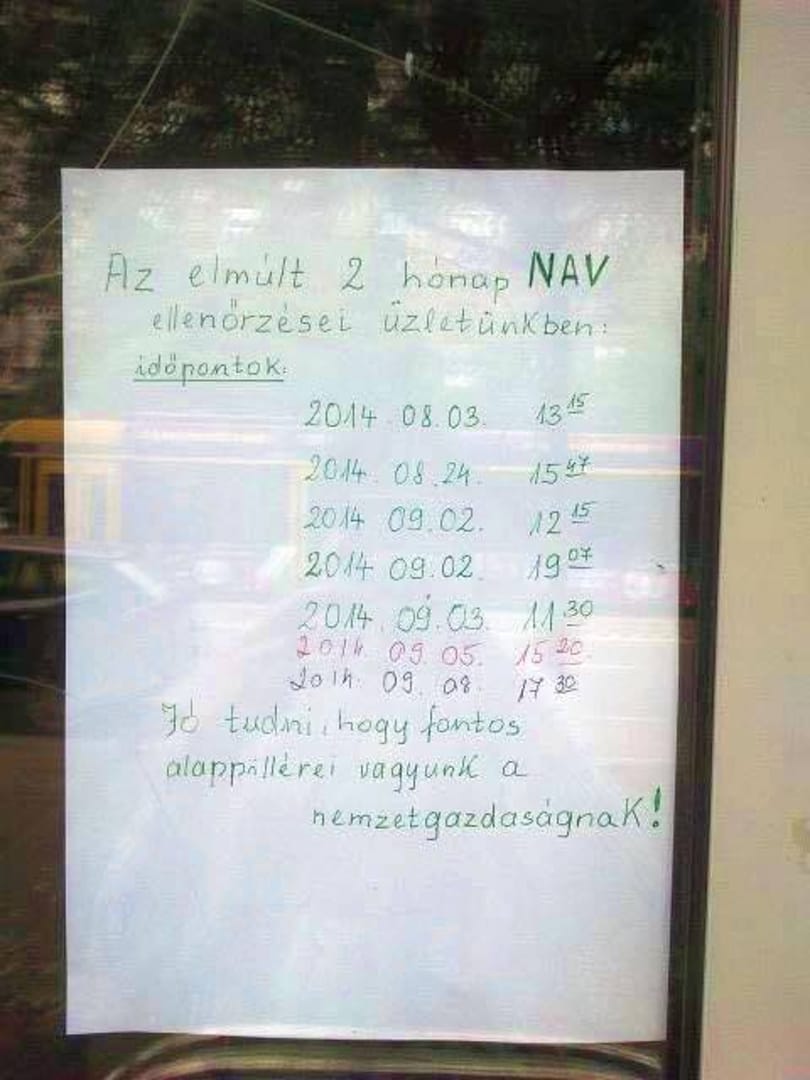 Az elmúlt 2 hónap NAV
ellenőrzései üzletünkben:
időpontok:
2014.08.03. 13 15
2014.08.24. 15 47
2014 09.02. 12 15
2014 09.02. 19 07
2014.09.03. 11 30
2014. 09 05. 15 20
2014. 09. 08. 17 30
Jó tudni, hogy fontos
alappillérei vagyunk a
nemzetgazdaságnak!